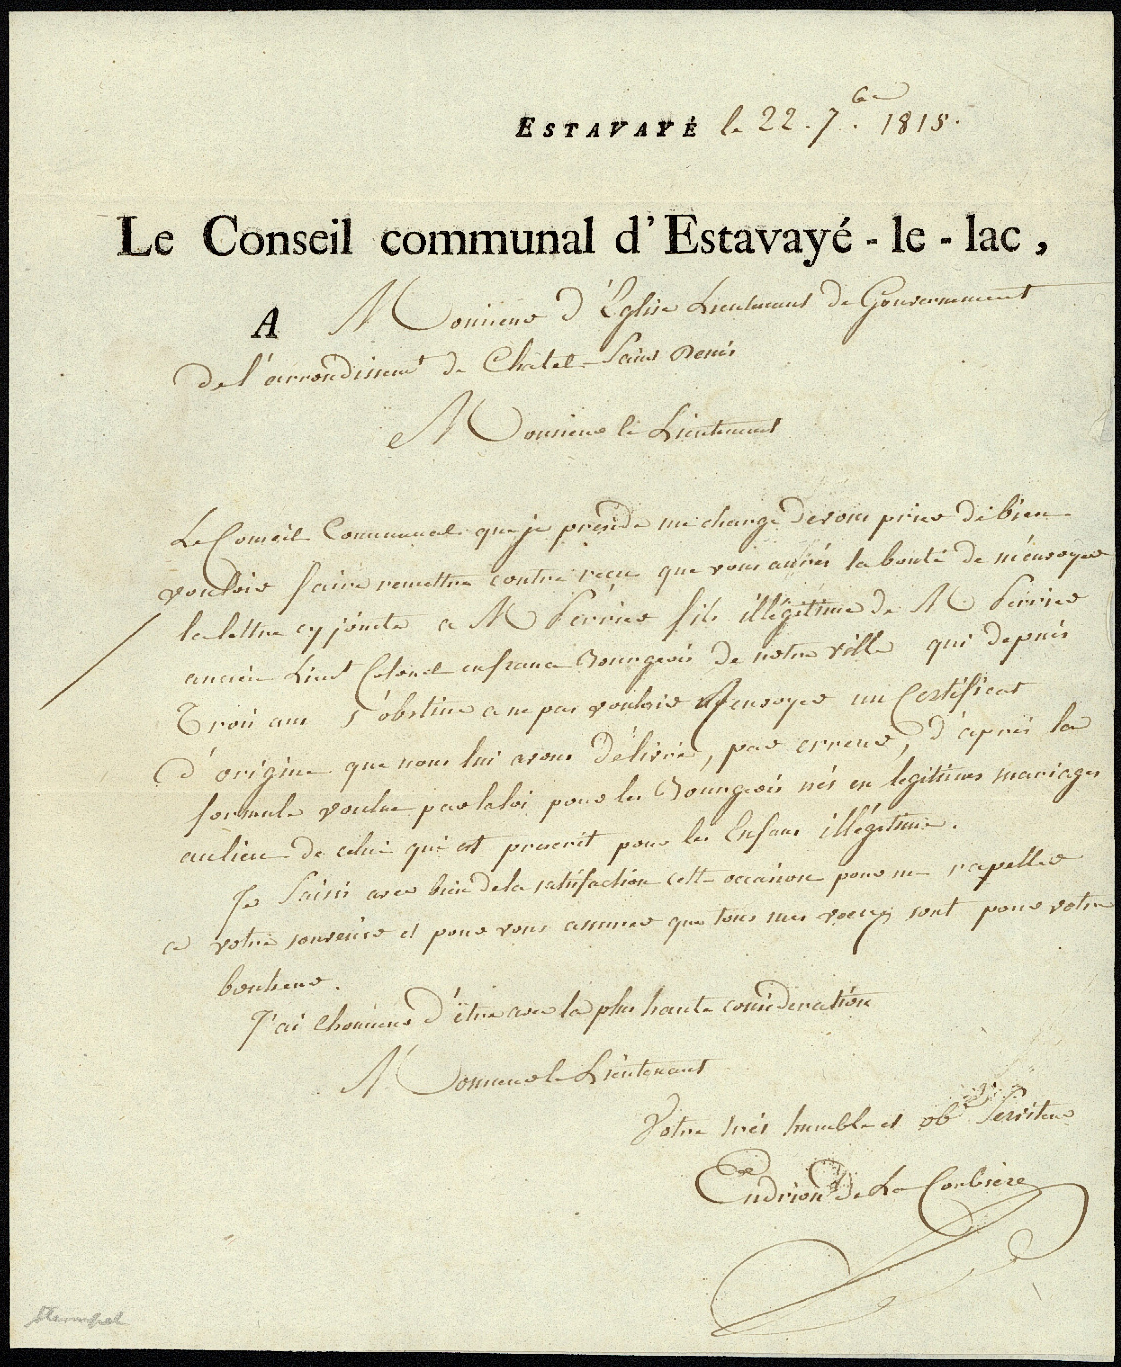 ESTAVAYÉ le 22. 7.bre 1815.
Le Conseil communal d'Estavayé - le - lac,
A Monsieur d'Eglise Lieutenant de Gouvernement
de l'arrondissemt de Chatel-Saint Denis
Monsieur le Lieutenant
Le Conseil Communal que je préside me charge de vous prier de bien
vouloir faire remettre contre recu que vous aurés la bonté de m'envoyer
la lettre cy jointe a M Perrier fils illégitime de M Perrier
ancien Lieut Colonel en france Bourgeois de notre ville qui depuis
Trois ans s'obstine a ne pas vouloir Renvoyer un Certificat
d'origine que nous lui avons délivré, par erreur, d'après la
formule voulue par la loi pour les Bourgeois nés en legitimes mariages
aulieu de celui qui est prescrit pour les Enfans illégitime.
Je Saisis avec bien de la satisfaction cette occasion pour me rapeller
a votre souvenir et pour vous assurer que tous mes voeux sont pour votre
bonheur.
J'ai l'honneur d'être avec la plus haute considération
Monsieur le Lieutenant
Votre très humble et obt Serviteur
Endrion de La Corbière
Stempel